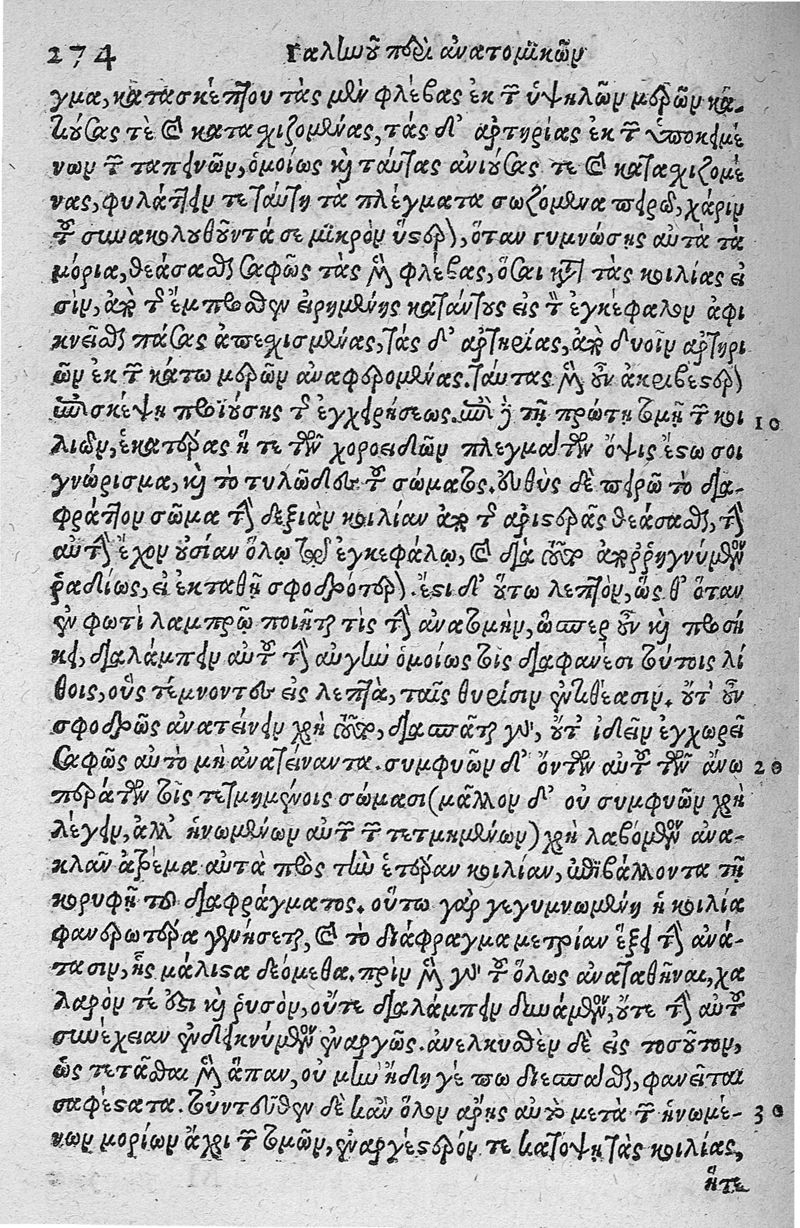 274 Γαληνοῦ περὶ ἀνατομικῶν
γμα, κατασκέπτου τὰς μὲν φλέβας ἐκ τῶν ὑψηλῶν μερῶν κα-
τιούσας τὲ καὶ κατασχιζομένας, τὰς δ' ἀρτηρίας ἐκ τῶν ὑποκειμέ
νων τῶν ταπεινῶν, ὁμοίως καὶ ταύτας ἀνιούσας τε καὶ κατασχιζομέ
νας, φυλάττειν τε ταύτῃ τὰ πλέγματα σωζόμενα πειρῶ, χάριν
τοῦ συνακολουθοῦντά σε μικρὸν ὕστερον, ὅταν γυμνώσῃς αὐτὰ τὰ
μόρια, θεάσασθαι σαφῶς τὰς μὲν φλέβας, ὅσαι κατὰ τὰς κοιλίας εἰ
σὶν, ἀπὸ τῆς ἔμπροσθεν εἰρημένης κατάντους εἰς τὸν ἐγκέφαλον ἀφι
κνεῖσθαι πάσας ἀπεσχισμένας, τὰς δ' ἀρτηρίας, ἀπὸ δυοῖν ἀρτηρι
ῶν ἐκ τῶν κάτω μερῶν ἀναφερομένας. ταύτας μὲν οὖν ἀκριβέστερον
ἐπισκέψῃ προϊούσης τῆς ἐγχειρήσεως. ἐπὶ δὲ τῇ πρώτῃ τομῇ τῶν κοι 10
λιῶν, ἑκατέρας ἥ τε τῶν χοροειδῶν πλεγμάτων ὄψις ἔστω σοι
γνώρισμα, καὶ τὸ τυλῶδες τοῦ σώματος. εὐθὺς δὲ πειρῶ τὸ δια-
φράττον σῶμα τὴν δεξιὰν κοιλίαν ἀπὸ τῆς ἀριστερᾶς θεάσασθαι, τὴν
αὐτὴν ἔχον οὐσίαν ὅλῳ τῷ ἐγκεφάλῳ, καὶ διὰ τοῦτο ἀποῤῥηγνύμενον
ῥᾳδίως, εἰ ἐκταθῇ σφοδρότερον. ἔστι δ' οὕτω λεπτὸν, ὥς θ' ὅταν
ἐν φωτὶ λαμπρῷ ποιῆται τὶς τὴν ἀνατομὴν, ὥσπερ οὖν καὶ προσή
κει, διαλάμπειν αὐτοῦ τὴν αὐγὴν ὁμοίως τοῖς διαφανέσι τούτοις λί
θοις, οὓς τέμνοντες εἰς λεπτὰ, ταῖς θυρίσιν ἐντιθέασιν. οὔτ' οὖν
σφοδρῶς ἀνατείνειν χρὴ τοῦτο, διασπᾶται γὰρ, οὔτ' ἰδεῖν ἐγχωρεῖ
σαφῶς αὐτὸ μὴ ἀνατείναντα. συμφυῶν δ' ὄντων αὐτοῦ τῶν ἄνω 20
περάτων τοῖς τετμημένοις σώμασι (μᾶλλον δ' οὐ συμφυῶν χρὴ
λέγειν, ἀλλ' ἡνωμένων αὐτῶν τῶν τετμημένων) χρὴ λαβόμενον ἀνα-
κλᾶν ἀτρέμα αὐτὰ πρὸς τὴν ἑτέραν κοιλίαν, ἐπιβάλλοντα τῇ
κορυφῇ του διαφράγματος. οὕτω γὰρ γεγυμνωμένη ἡ κοιλία
φανερωτέρα γενήσεται, καὶ τὸ διάφραγμα μετρίαν ἕξει τὴν ἀνά-
τασιν, ἧς μάλιστα δεόμεθα. πρὶν μὲν γὰρ τοῦ ὅλως ἀναταθῆναι, χα
λαρόν τέ ἐστι καὶ ῥυσὸν, οὔτε διαλάμπειν δυνάμενον, οὔτε τὴν αὐτοῦ
συνέχειαν ἐνδεικνύμενον ἐναργῶς. ἀνελκυσθὲν δὲ εἰς τοσοῦτον,
ὡς τετᾶσθαι μὲν ἅπαν, οὐ μὴν ἤδη γέ πω διεσπᾶσθαι, φανεῖται
σαφέστατα. τοὐντεῦθεν δὲ κἂν ὅλον ἄρῃς αὐτὸ μετὰ τῶν ἡνωμέ- 30
νων μορίων ἄχρι τῶν τομῶν, ἐναργέστερόν τε κατόψῃ τὰς κοιλίας,
ἥτε